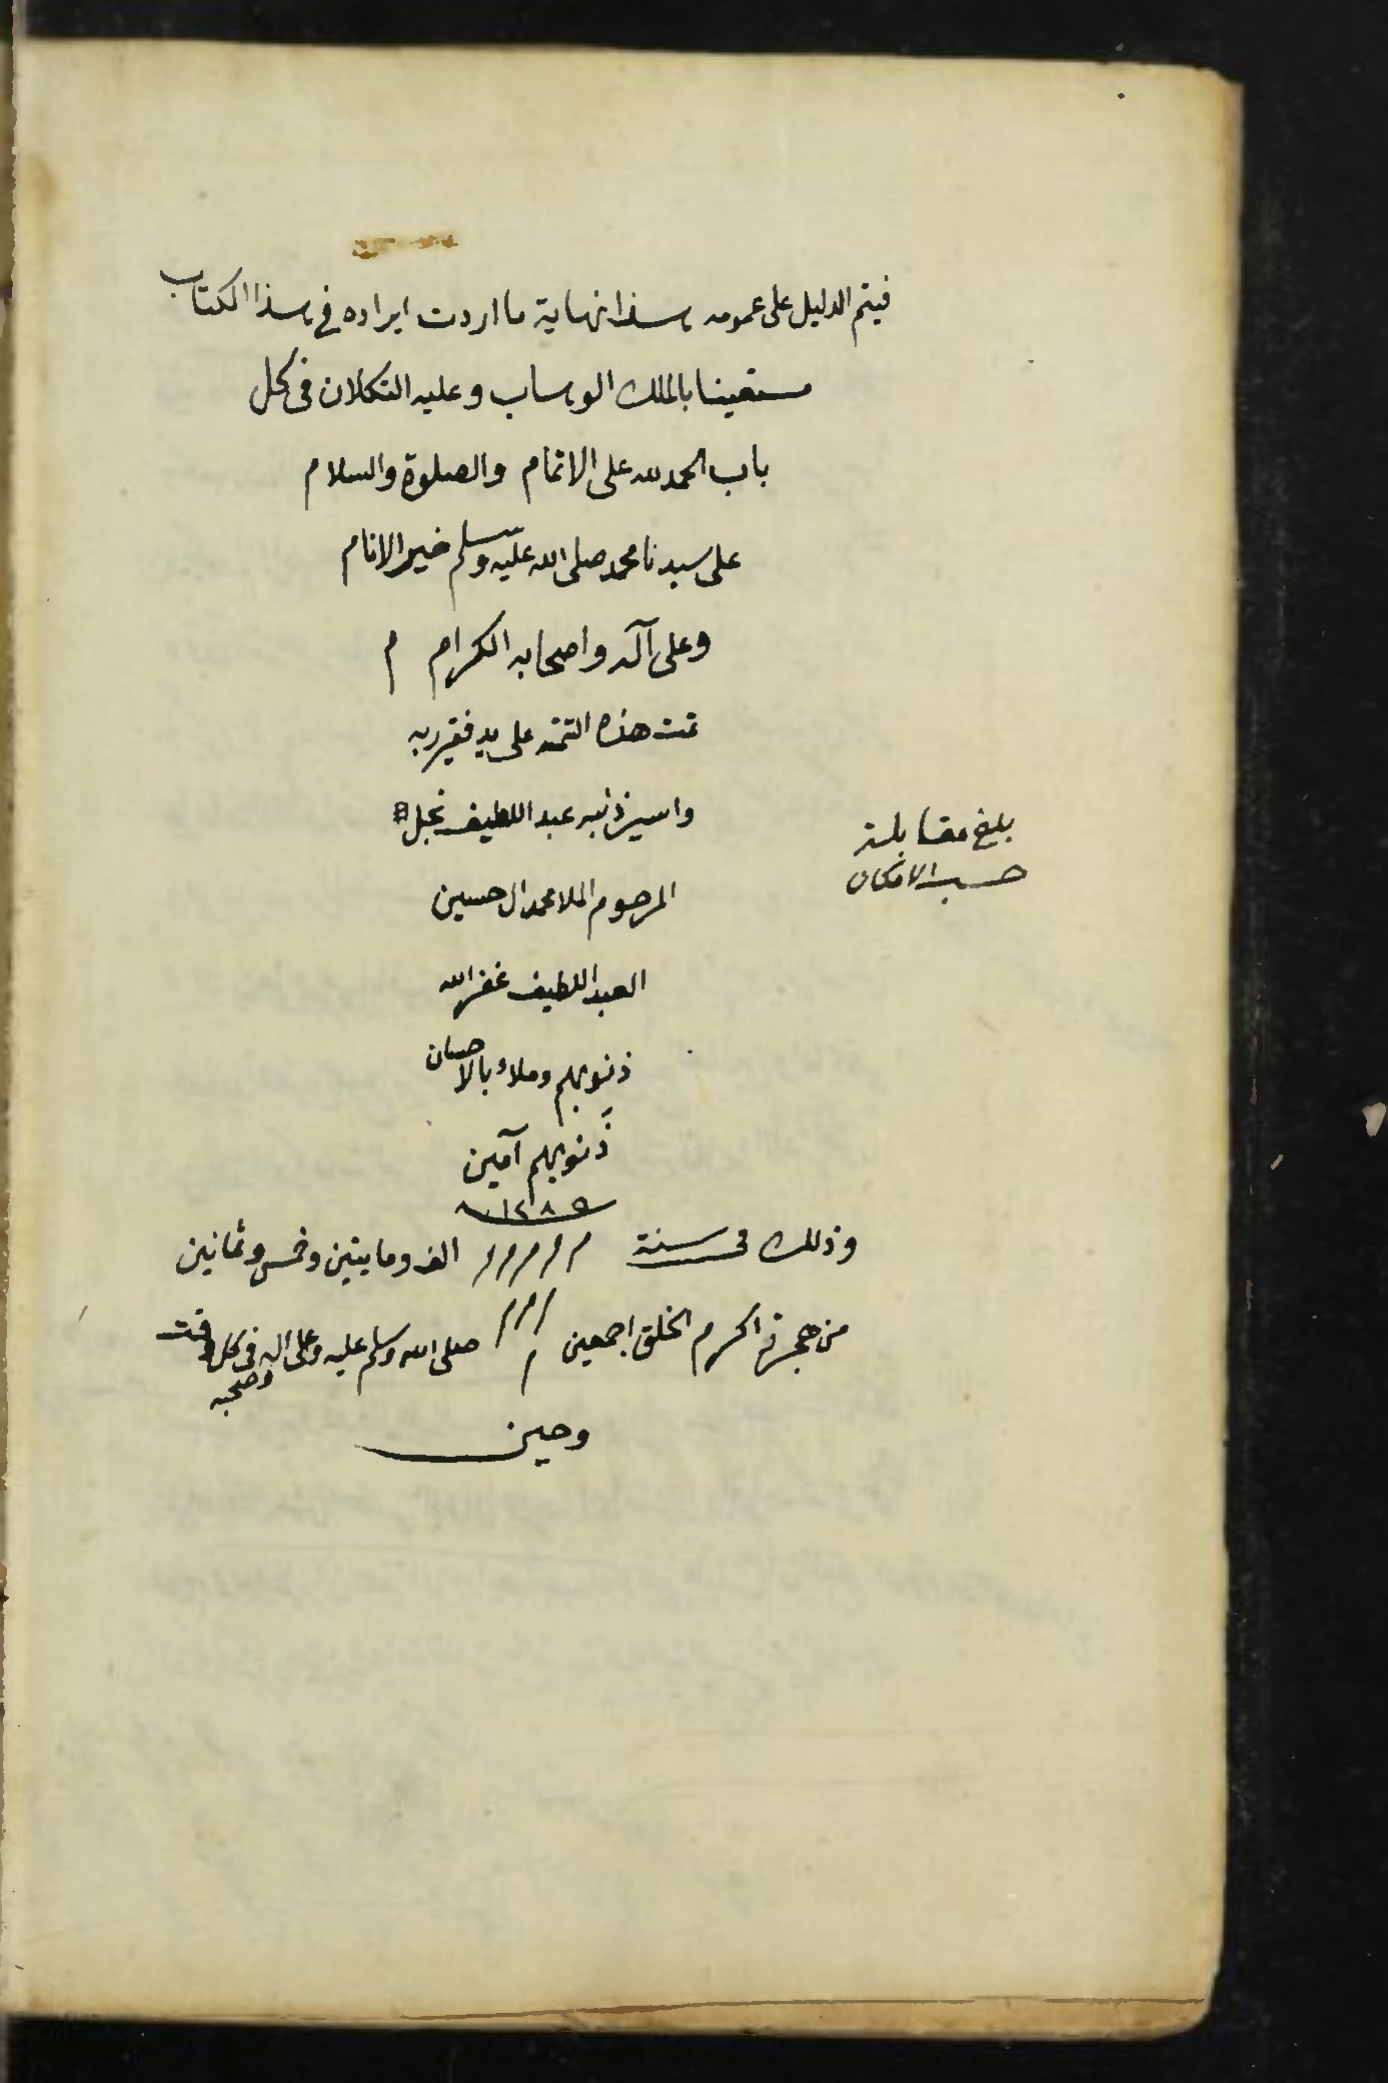 فيتم الدليل على عمومه هذا نهاية ما اردت ايراده في هذا الكتاب
مستعينا بالملك الوهاب وعليه التكلان فى كل
باب الحمد لله على الاتمام والصلوة والسلام
على سيدنا محمد صلى الله عليه وسلم خير الانام
وعلى آله واصحابه الكرام م
تمت هذه التتمه على يد فقير ربه
واسير ذنبه عبد اللطيف نجل
المرحوم الملا محمد ال حسين
العبد اللطيف غفر الله
ذنوبهم وملاء بالاحسان
ذنوبهم آمين
١٢٨٥
وذلك فى سنة الف ومايتين وخمس وثمانين
من هجرة اكرم الخلق اجمعين م صلى الله وسلم عليه وعلى اله وصحبه فى كل وقت
وحين
بلغ مقابلة
حسب الامكان